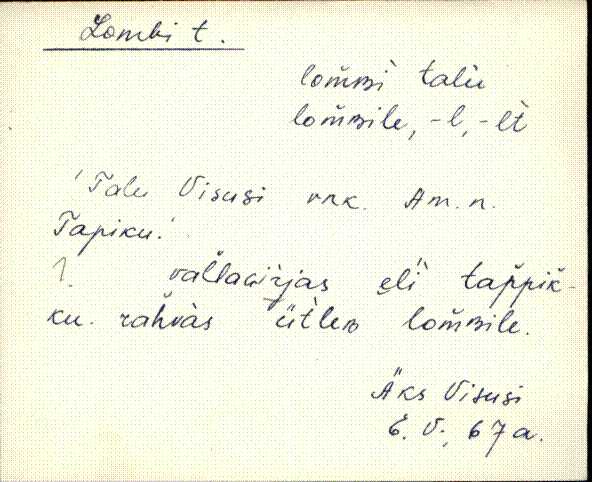 Lombi t.
lom̆ʙì talù
lom̆ʙile, -l, -lt̀
'Talu Visusi vnk. Am. n.
Tapiku.'
1. val̆lacìrjas ęlì tap̆pik̆-
ku. rah̆vàs üt̀leʙ lom̆ʙile.
Äks Visusi
E. V., 67 a.